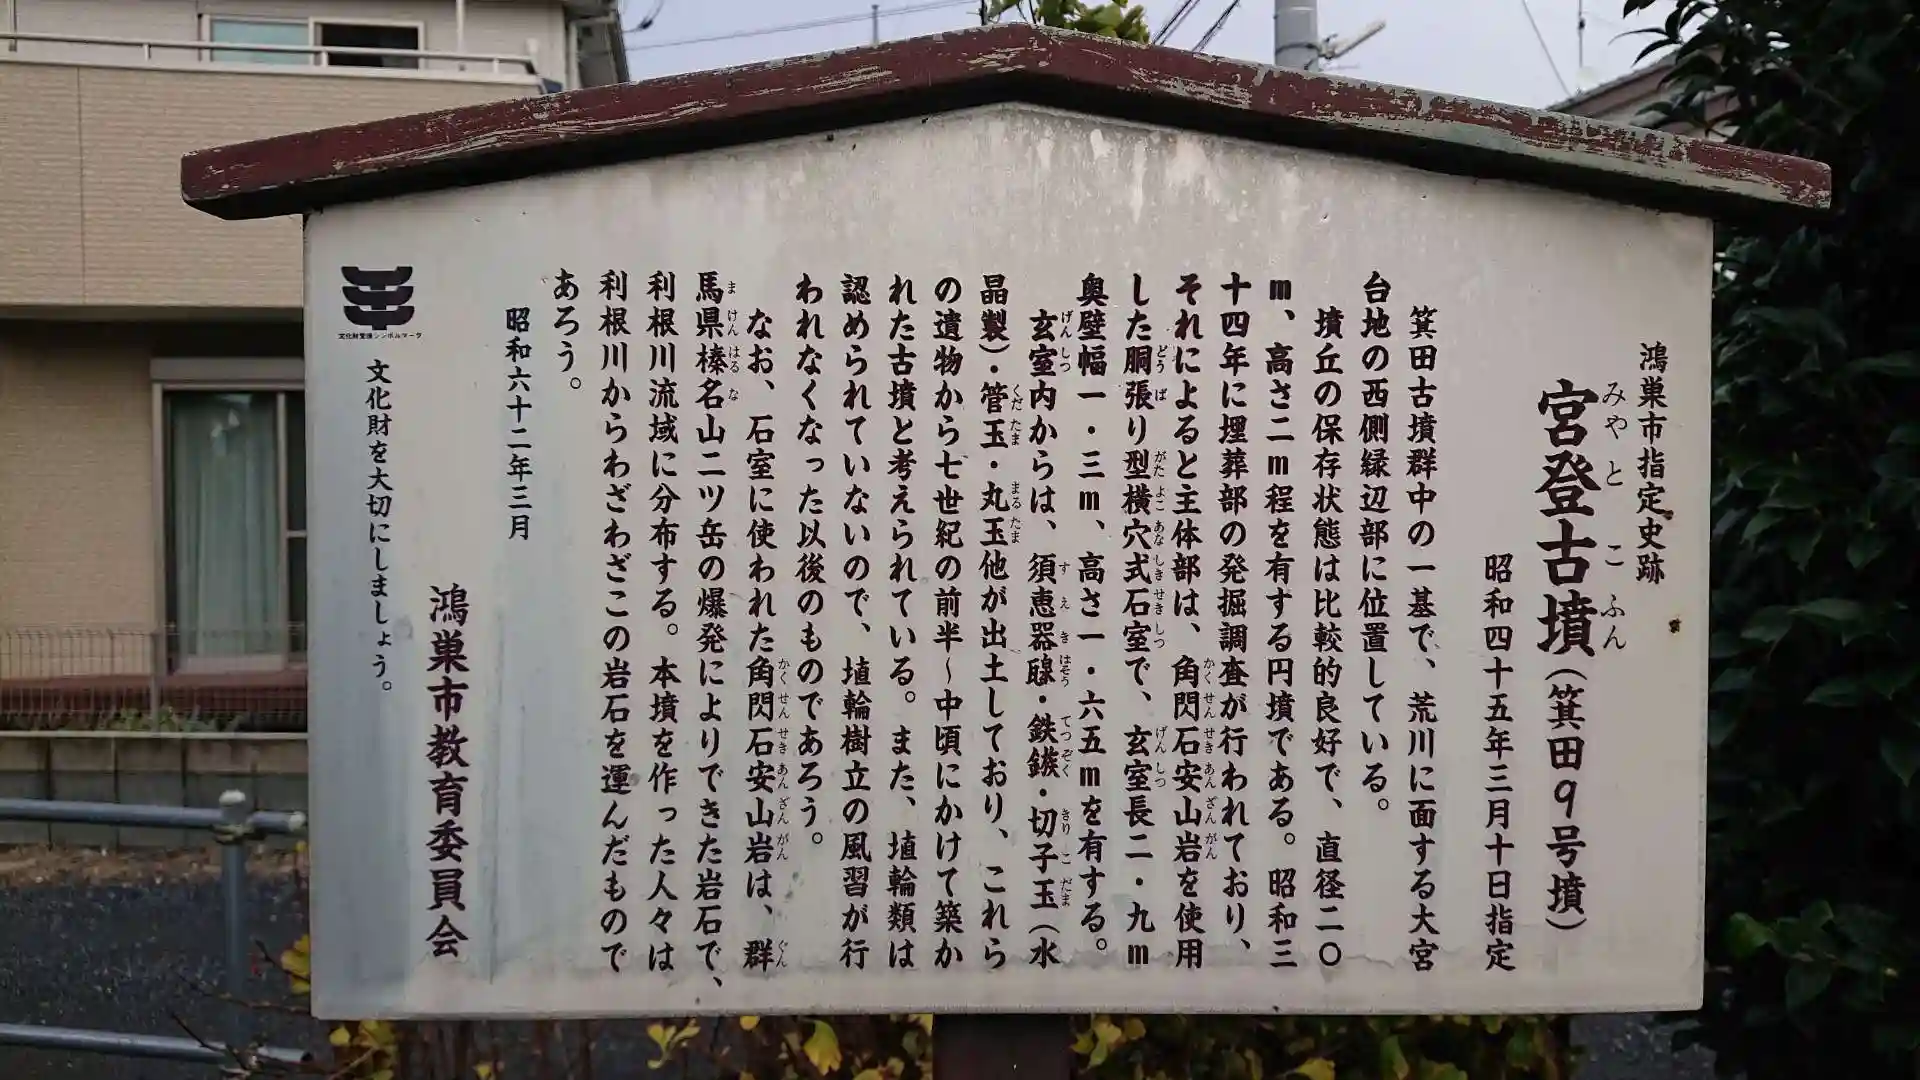 鴻巣市指定史跡
宮登古墳(箕田9号墳)
みやとこふん
昭和四十五年三月十日指定
箕田古墳群中の一基で、荒川に面する大宮
台地の西側縁辺部に位置している。
墳丘の保存状態は比較的良好で、直径二〇
m、高さ二m程を有する円墳である。昭和三
十四年に埋葬部の発掘調査が行われており、
それによると主体部は、角閃石安山岩を使用
かくせんせきあんざんがん
した胴張り型横穴式石室で、玄室長二・九m
どうばがたよこあなしきせきしつげんしつ
奥壁幅一・三m、高さ一・六五mを有する。
玄室内からは、須恵器𤭯・鉄鏃・切子玉(水
げんしつすえきはそうてつぞくきりこだま
晶製)・管玉・丸玉他が出土しており、これら
くだたままるたま
の遺物から七世紀の前半～中頃にかけて築か
れた古墳と考えられている。また、埴輪類は
認められていないので、埴輪樹立の風習が行
われなくなった以後のものであろう。
なお、石室に使われた角閃石安山岩は、群
かくせんせきあんざんがんぐん
馬県榛名山二ツ岳の爆発によりできた岩石で、
まけんはるな
利根川流域に分布する。本墳を作った人々は
利根川からわざわざこの岩石を運んだもので
あろう。
昭和六十二年三月
鴻巣市教育委員会
文化財愛護シンボルマーク
文化財を大切にしましょう。